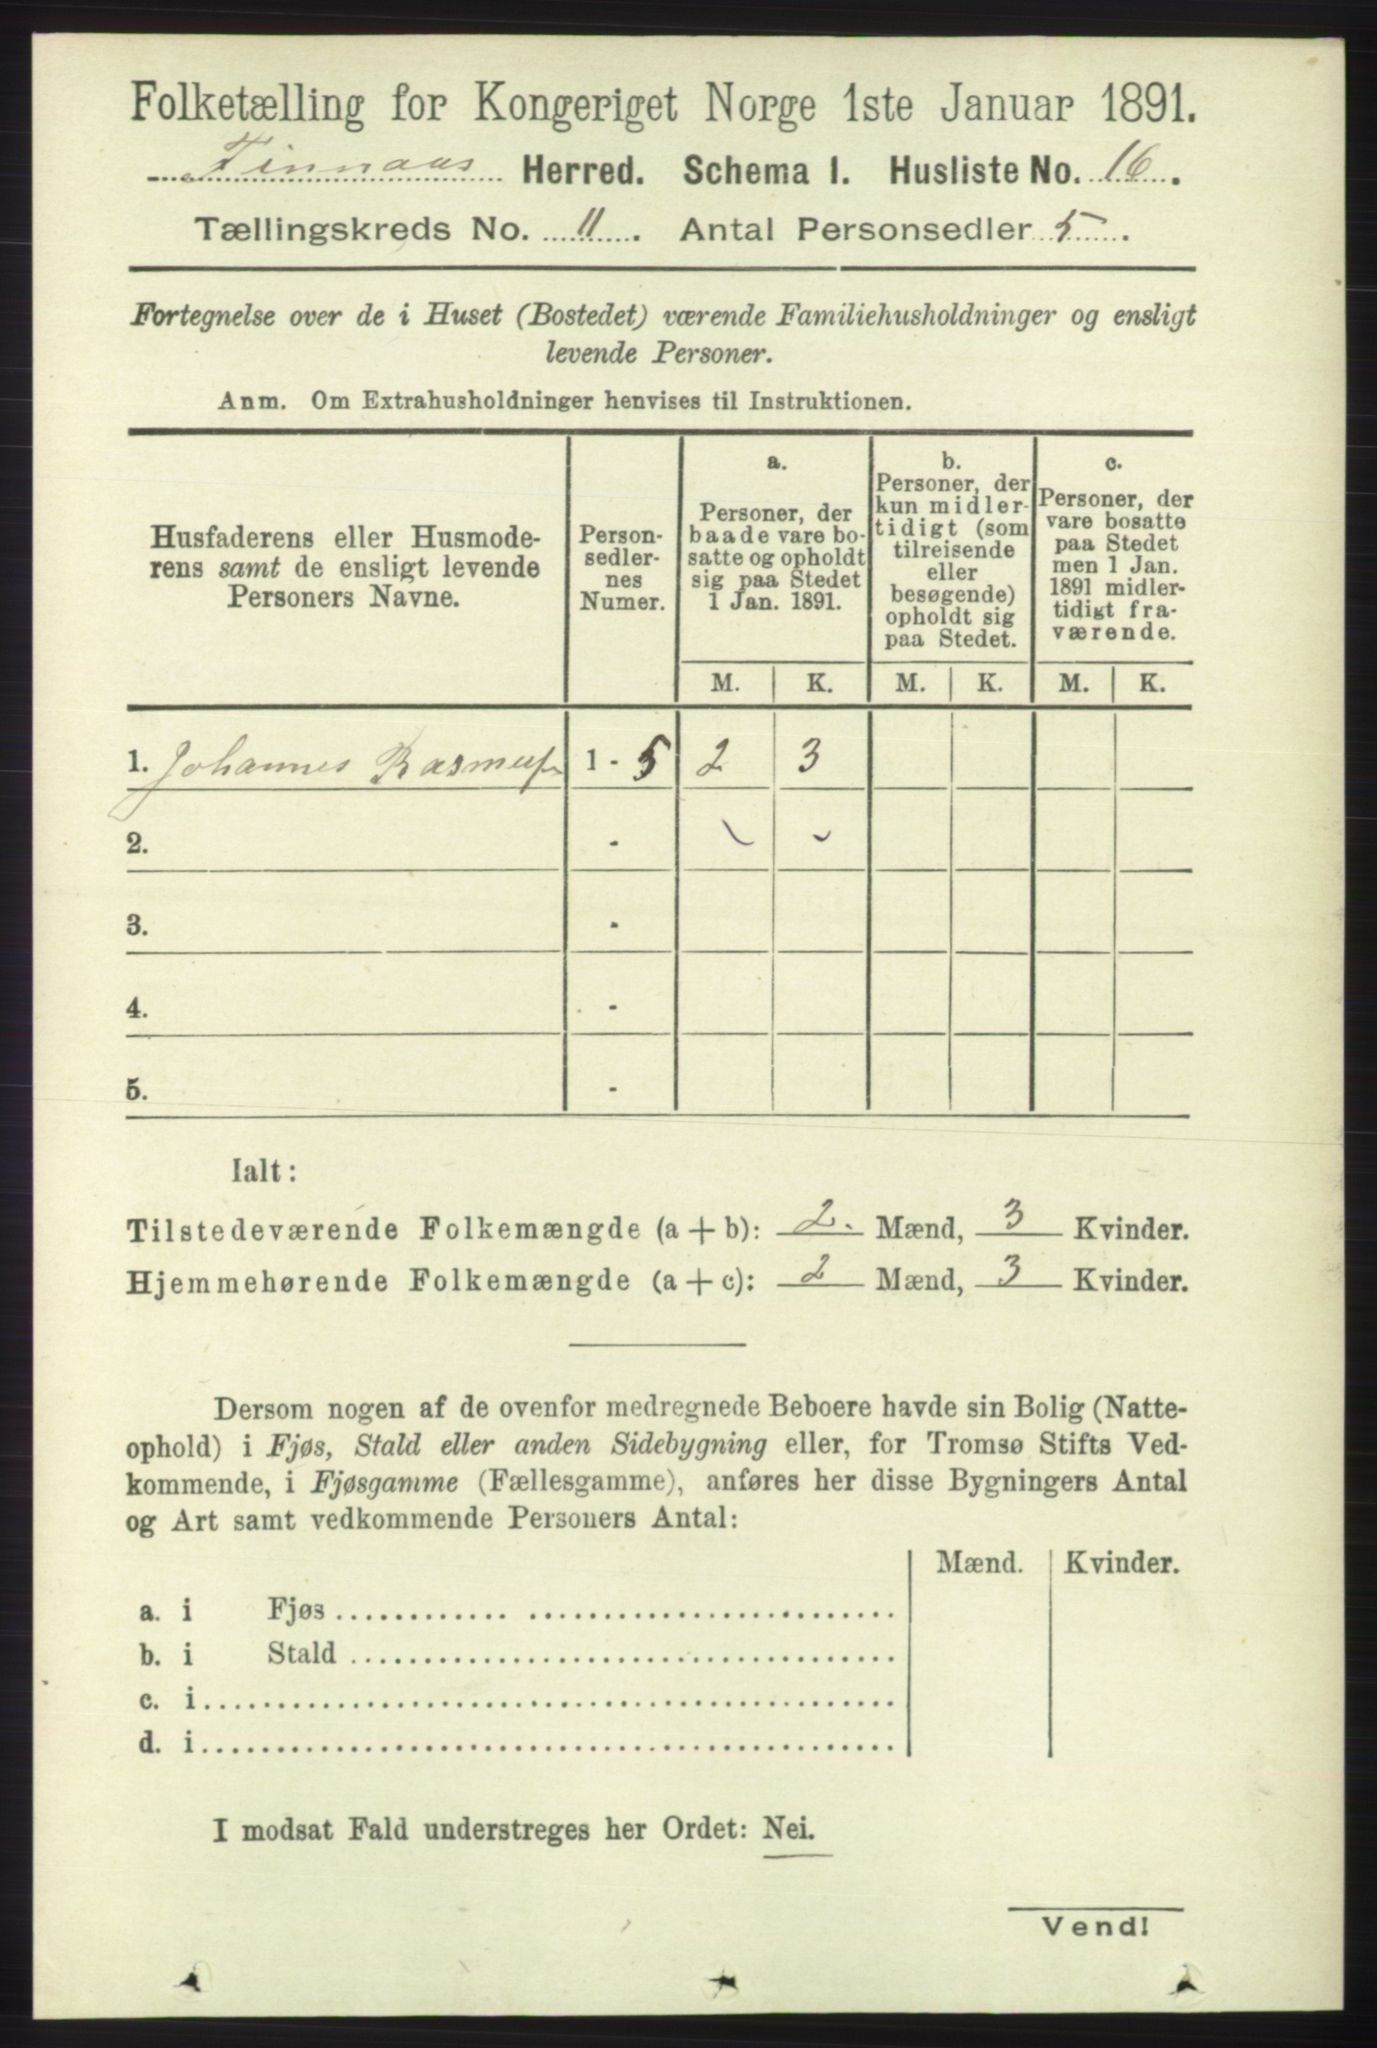 Folketælling for Kongeriget Norge 1ste Januar 1891.
Finnaas Herred. Schema 1. Husliste No. 16.
Tællingskreds No. 11. Antal Personsedler 5.
Fortegnelse over de i Huset (Bostedet) værende Familiehusholdninger og ensligt
levende Personer.
Anm. Om Extrahusholdninger henvises til Instruktionen.
Husfaderens eller Husmode-
rens samt de ensligt levende
Personers Navne.
Person-
sedler-
nes
Numer.
a.
Personer, der
baade vare bo-
satte og opholdt
sig paa Stedet
1 Jan. 1891.
b.
Personer, der
kun midler-
tidigt (som
tilreisende
eller
besøgende)
opholdt sig
paa Stedet.
c.
Personer, der
vare bosatte
paa Stedet
men 1 Jan.
1891 midler-
tidigt fra-
værende.
M. K. M. K. M. K.
1. Johannes Rasmuss 1 - 5 2 3
2. -
3. -
4. -
5. -
Ialt:
Tilstedeværende Folkemængde (a + b): 2. Mænd, 3 Kvinder.
Hjemmehørende Folkemængde (a + c): 2 Mænd, 3 Kvinder.
Dersom nogen af de ovenfor medregnede Beboere havde sin Bolig (Natte-
ophold) i Fjøs, Stald eller anden Sidebygning eller, for Tromsø Stifts Ved-
kommende, i Fjøsgamme (Fællesgamme), anføres her disse Bygningers Antal
og Art samt vedkommende Personers Antal:
Mænd. Kvinder.
a. i Fjøs
b. i Stald
c. i
d. i
I modsat Fald understreges her Ordet: Nei.
Vend!